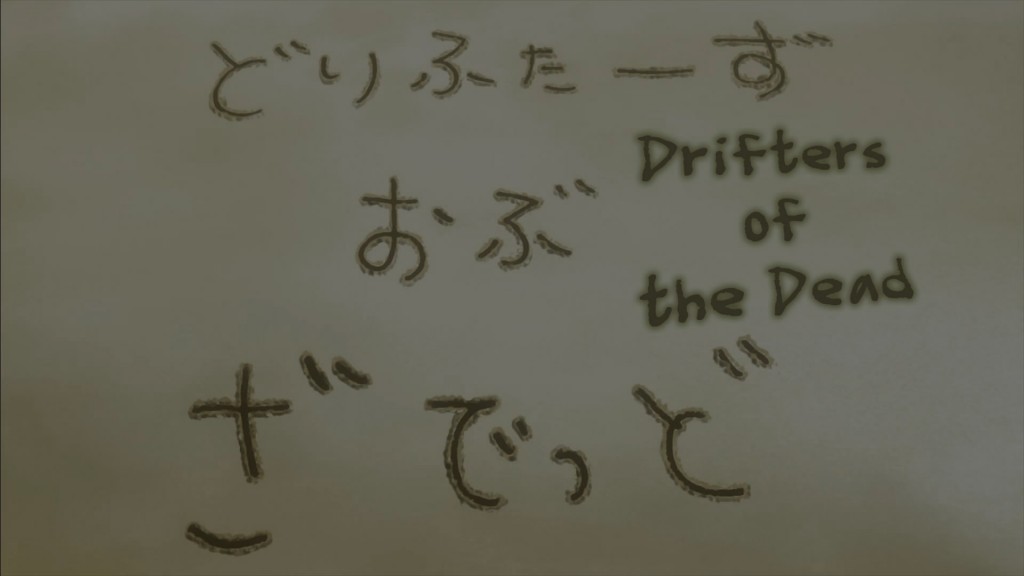 どりふたーず
おぶ
ざでっど
Drifters
of
the Dead